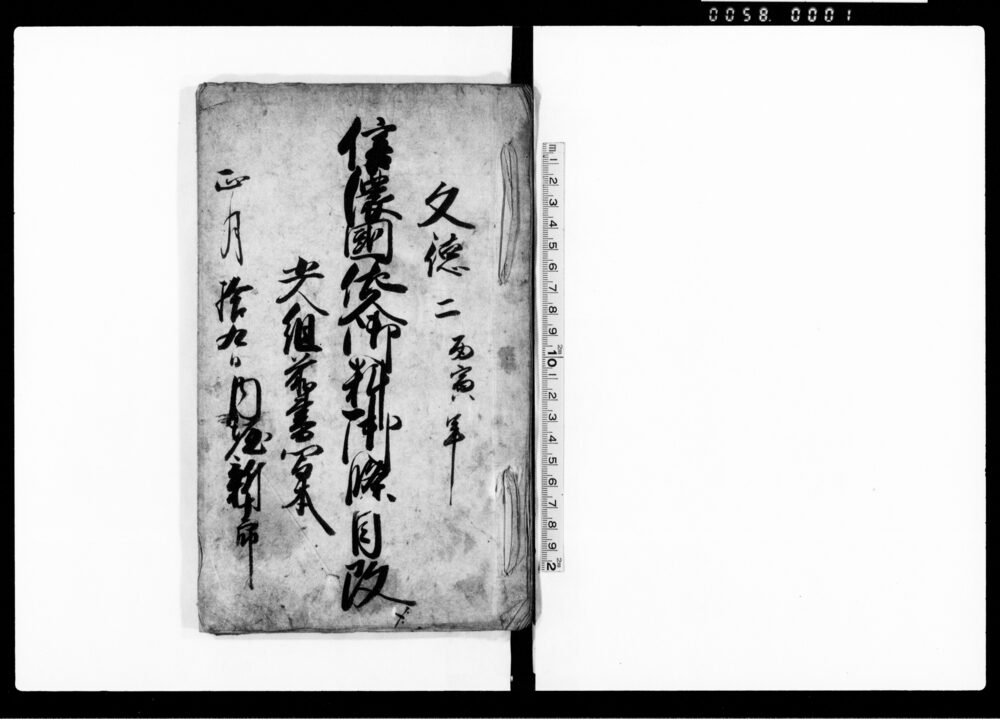 0058. 0001
文徳二 丙寅年
信濃國佐 御料御 目改
五人組前書写本
正月拾九日 内堀新
m 1 2 3 4 5 6 7 8 9 10 1 2 3 4 5 6 7 8 9 2